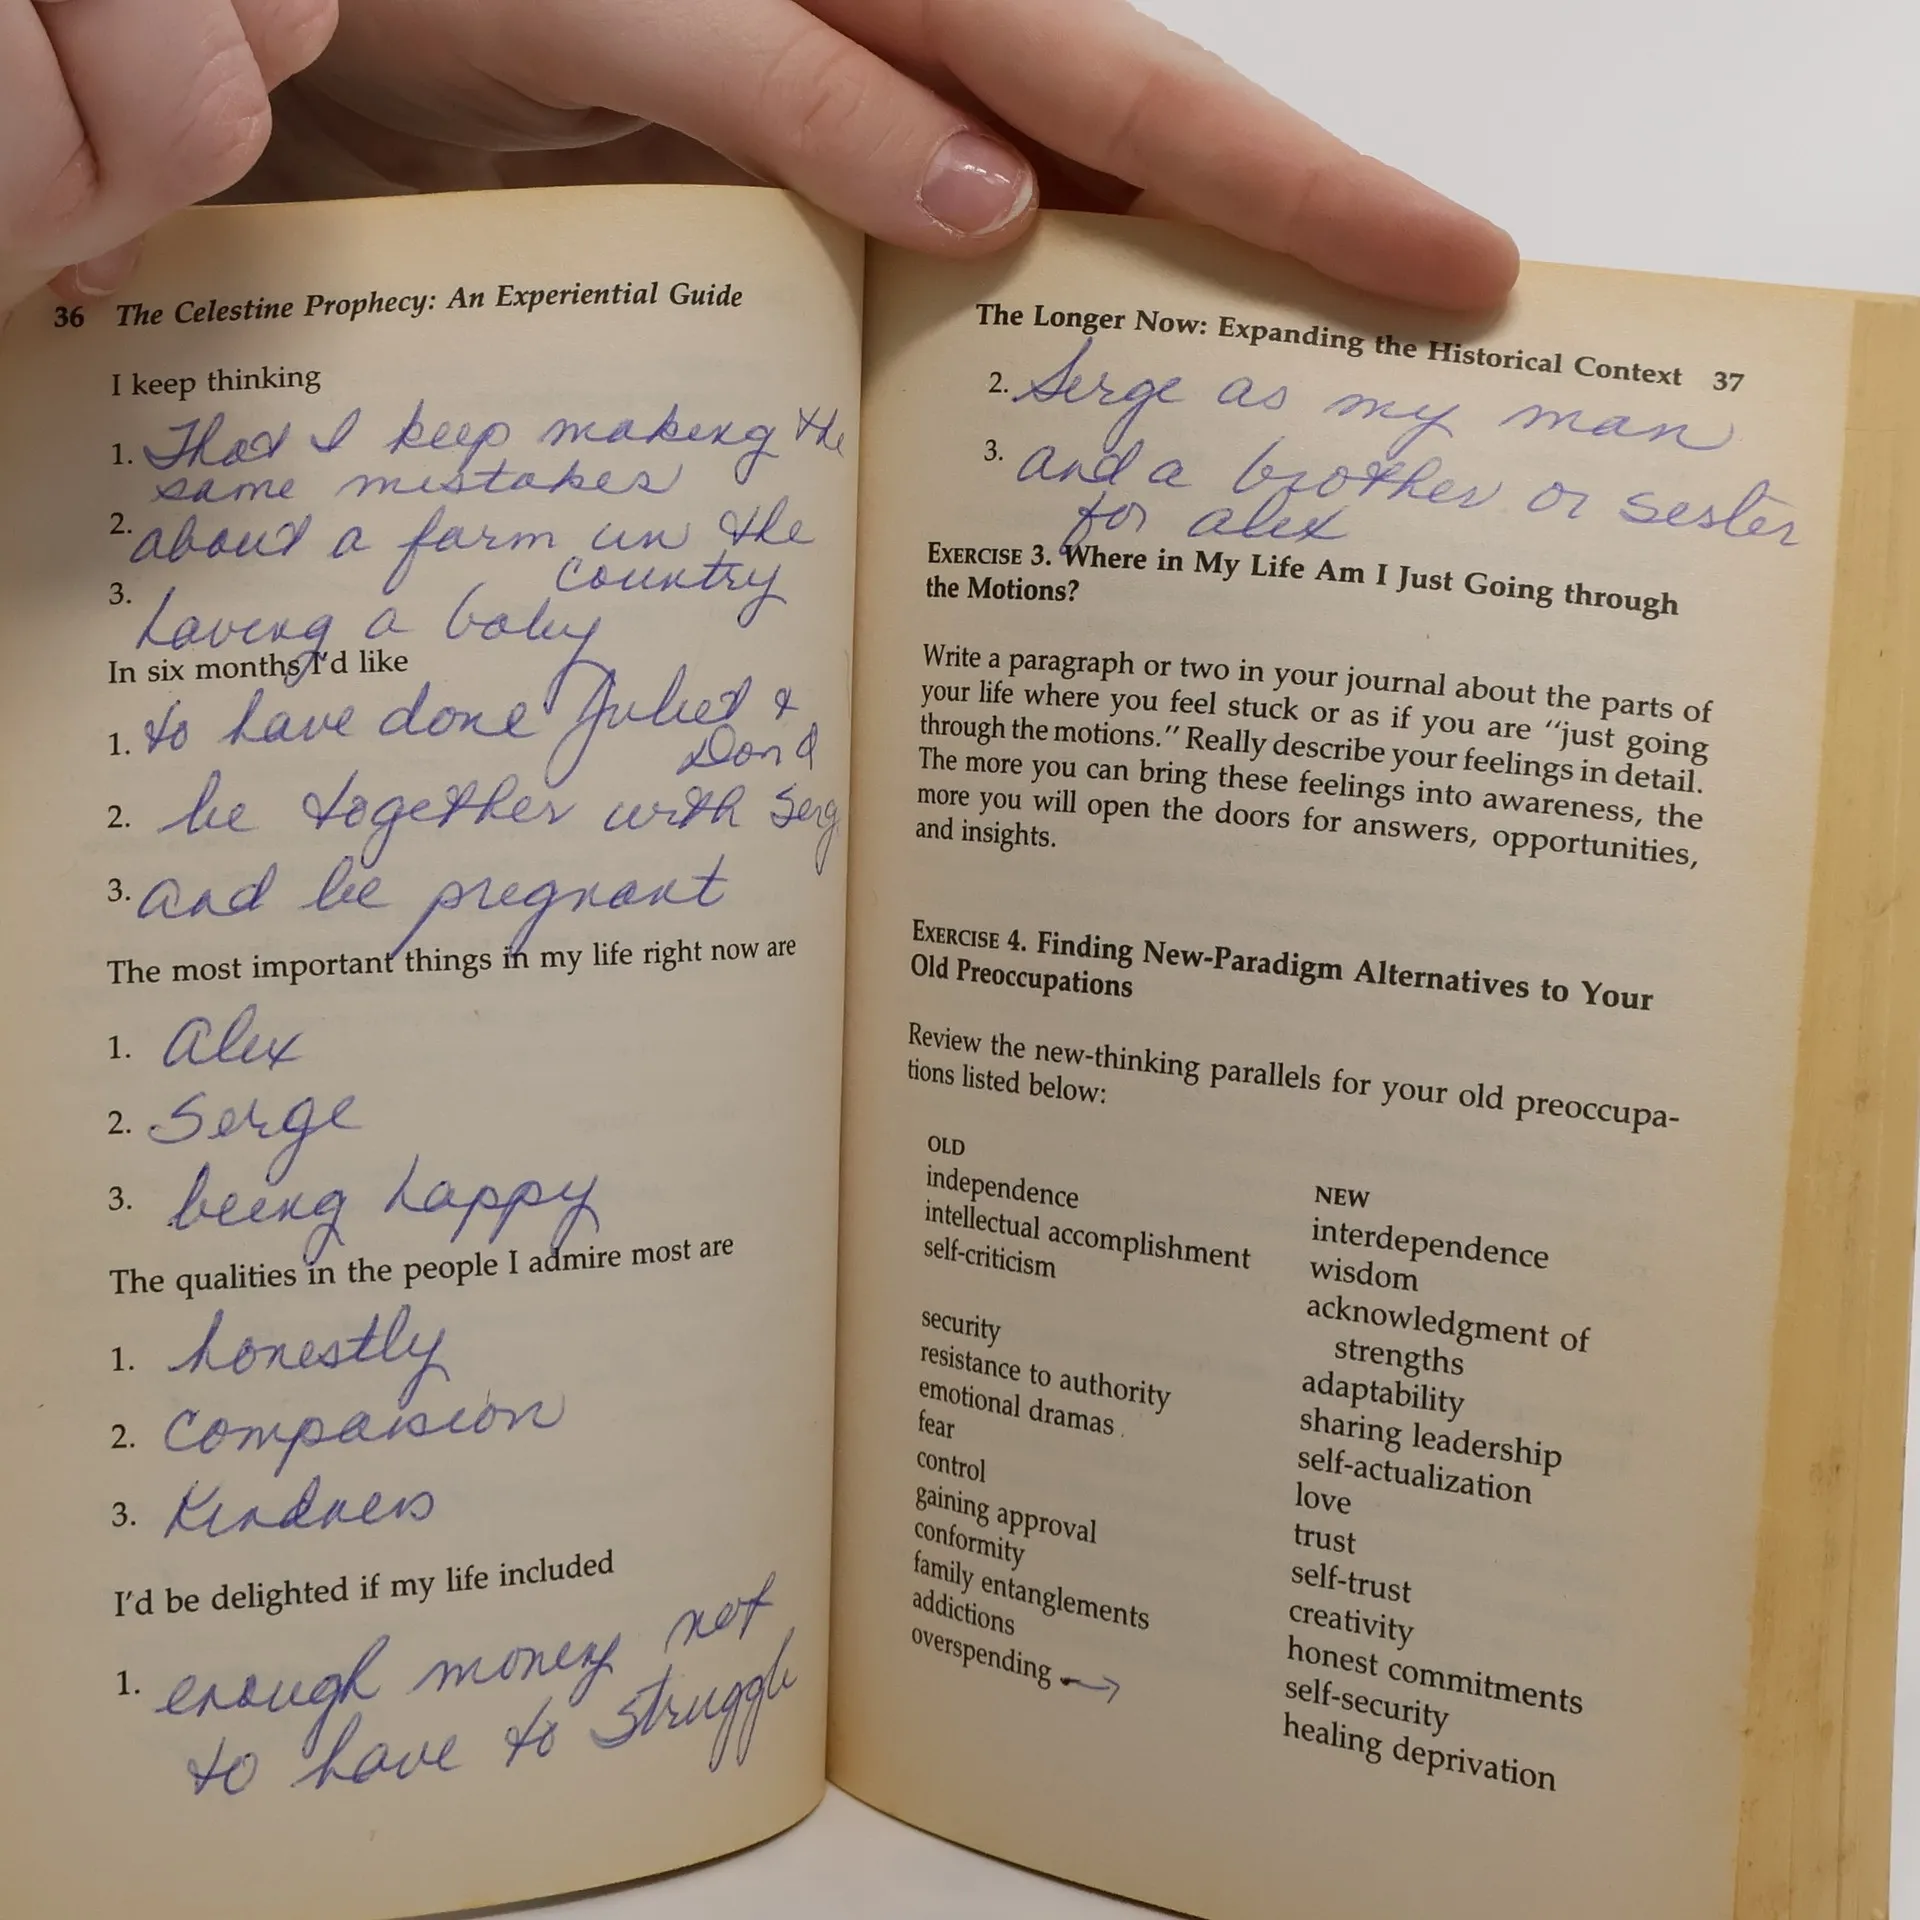 36 The Celestine Prophecy: An Experiential Guide
I keep thinking
1. That I keep making the
same mistakes
2. about a farm in the
country
3. having a baby
In six months I'd like
1. to have done Juliet &
Don
2. be together with Serg
3. and be pregnant
The most important things in my life right now are
1. Alex
2. Serge
3. being happy
The qualities in the people I admire most are
1. honestly
2. Compassion
3. Kindness
I'd be delighted if my life included
1. enough money not
to have to struggle
The Longer Now: Expanding the Historical Context 37
2. Serge as my man
3. and a brother or sister
for alex
EXERCISE 3. Where in My Life Am I Just Going through
the Motions?
Write a paragraph or two in your journal about the parts of
your life where you feel stuck or as if you are "just going
through the motions." Really describe your feelings in detail.
The more you can bring these feelings into awareness, the
more you will open the doors for answers, opportunities,
and insights.
EXERCISE 4. Finding New-Paradigm Alternatives to Your
Old Preoccupations
Review the new-thinking parallels for your old preoccupa-
tions listed below:
OLD
independence
intellectual accomplishment
self-criticism
security
resistance to authority
emotional dramas
fear
control
gaining approval
conformity
family entanglements
addictions
overspending →
NEW
interdependence
wisdom
acknowledgment of
strengths
adaptability
sharing leadership
self-actualization
love
trust
self-trust
creativity
honest commitments
self-security
healing deprivation